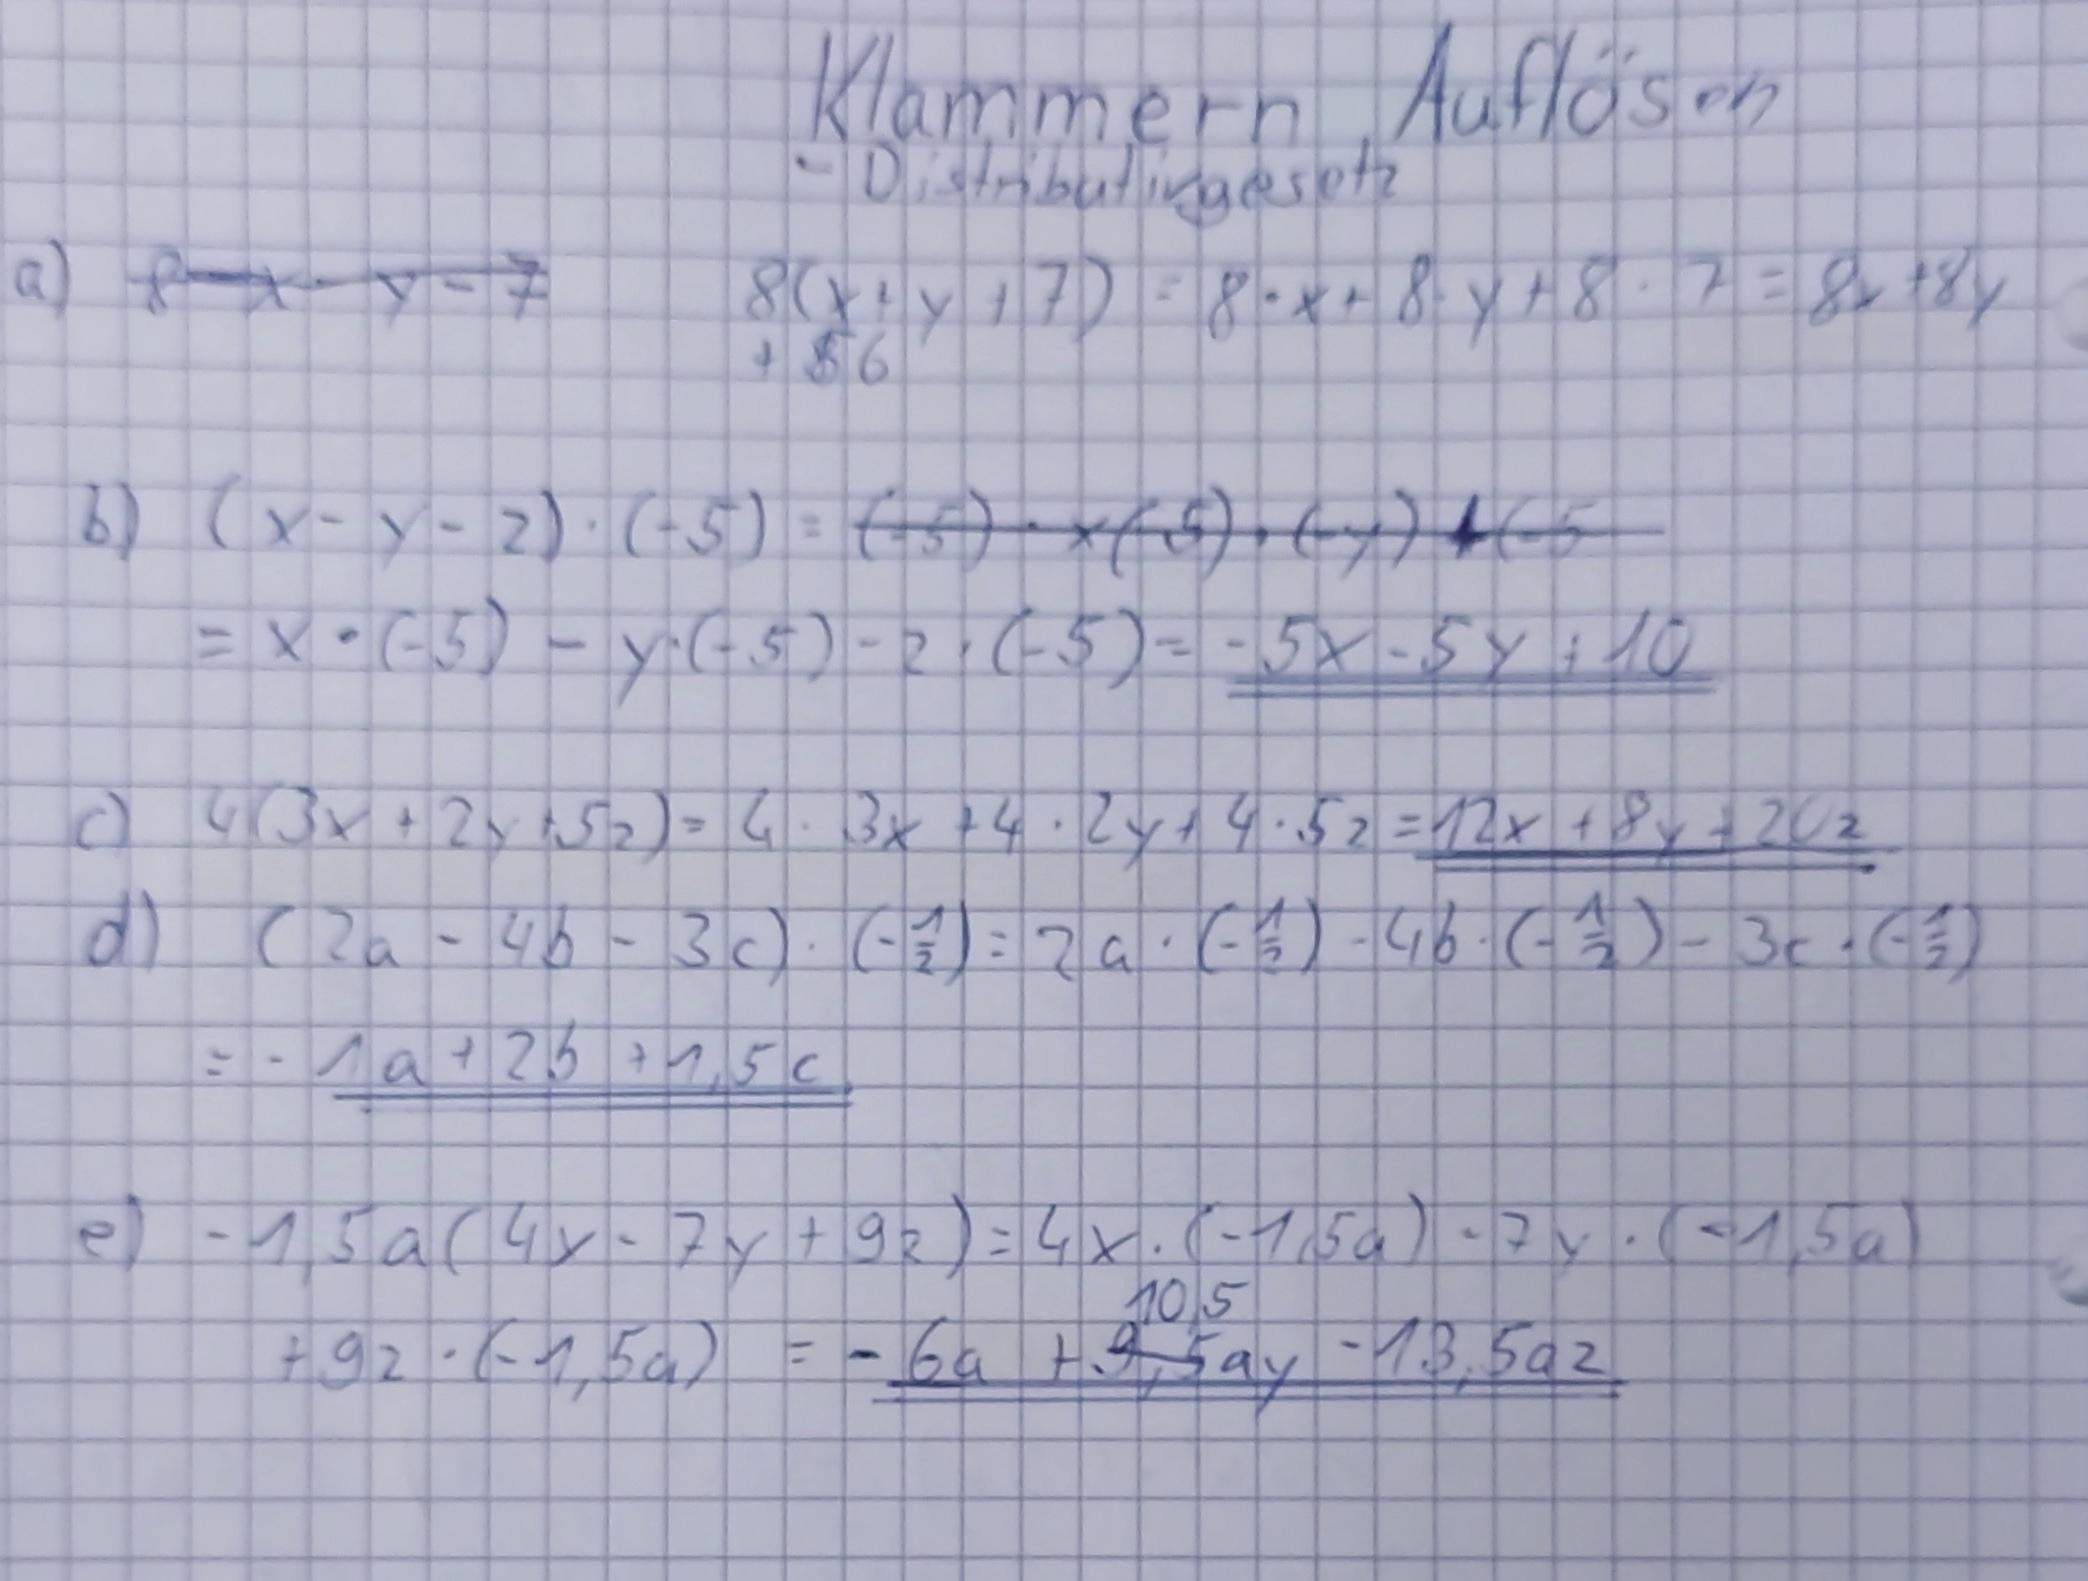 Klammern Auflösen
- Distributivgesetz
a) 8 - x - y - 7 8(x+y+7) = 8·x+8·y+8·7 = 8x+8y
+ 56
b) (x-y-2)·(-5) = (-5)·x(-5)·(-y)+(-5
= x·(-5) - y·(-5) - 2·(-5) = -5x-5y+10
c) 4(3x+2y+5z) = 4·3x+4·2y+4·5z = 12x+8y+20z
d) (2a-4b-3c)·(-1/2) = 2a·(-1/2)-4b·(-1/2)-3c·(-1/2)
= -1a+2b+1,5c
e) -1,5a(4x-7y+9z) = 4x·(-1,5a)-7y·(-1,5a)
10,5
+9z·(-1,5a) = -6a+9,5ay-13,5az